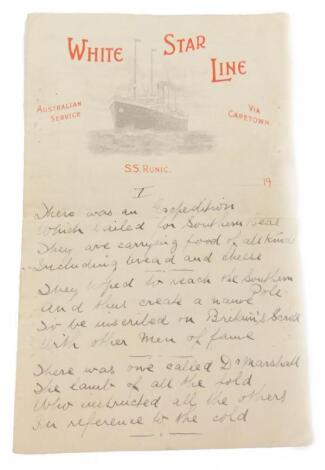 WHITE STAR LINE
AUSTRALIAN SERVICE
VIA CAPETOWN.
S.S. RUNIC.
19
I
There was an Expedition
Which sailed for Southern Seas
They are carrying food of all kind
Including bread and cheese
They hoped to reach the Southern Pole
And thus create a name
To be inscribed on Britain's Scroll
With other Men of fame
There was one called Dr Marshall
The lamb of all the fold
Who instructed all the others
In reference to the cold